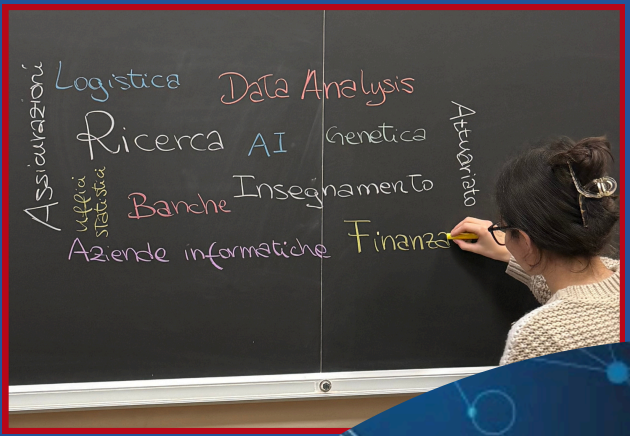 Assicurazioni
Logistica
Data Analysis
Ricerca
AI
Genetica
Attuariato
uffici
statistici
Banche
Insegnamento
Aziende informatiche
Finanza